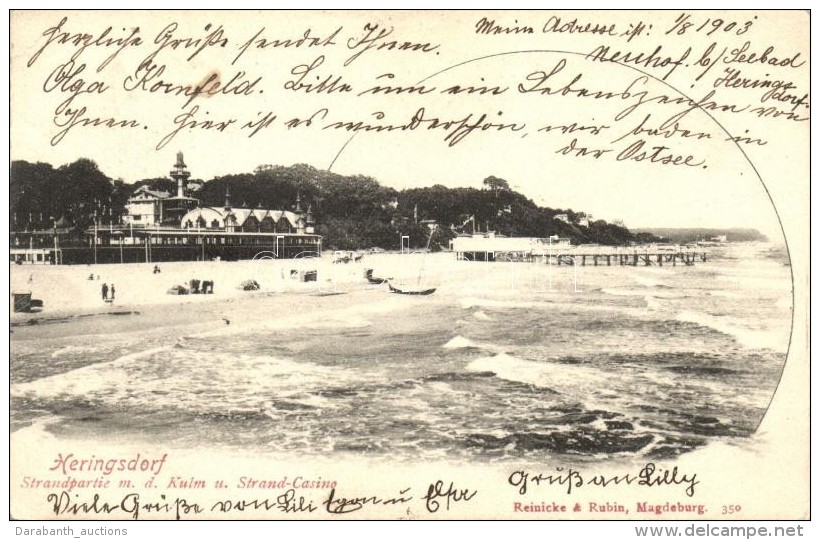 Meine Adresse ist: 1/8 1903
Herzliche Grüße sendet Ihnen.
Neuhof b/ Seebad
Heringsdorf.
Olga Kornfeld. Bitte um ein Lebenszeichen von
Ihnen. Hier ist es wunderschön, wir baden in
der Ostsee.
Heringsdorf
Strandpartie m. d. Kulm u. Strand-Casino
Viele Grüße von Lili u Elsa
Gruß an Lilly
Reinicke & Rubin, Magdeburg. 350
Darabanth_auctions
http://www.delcampe.net